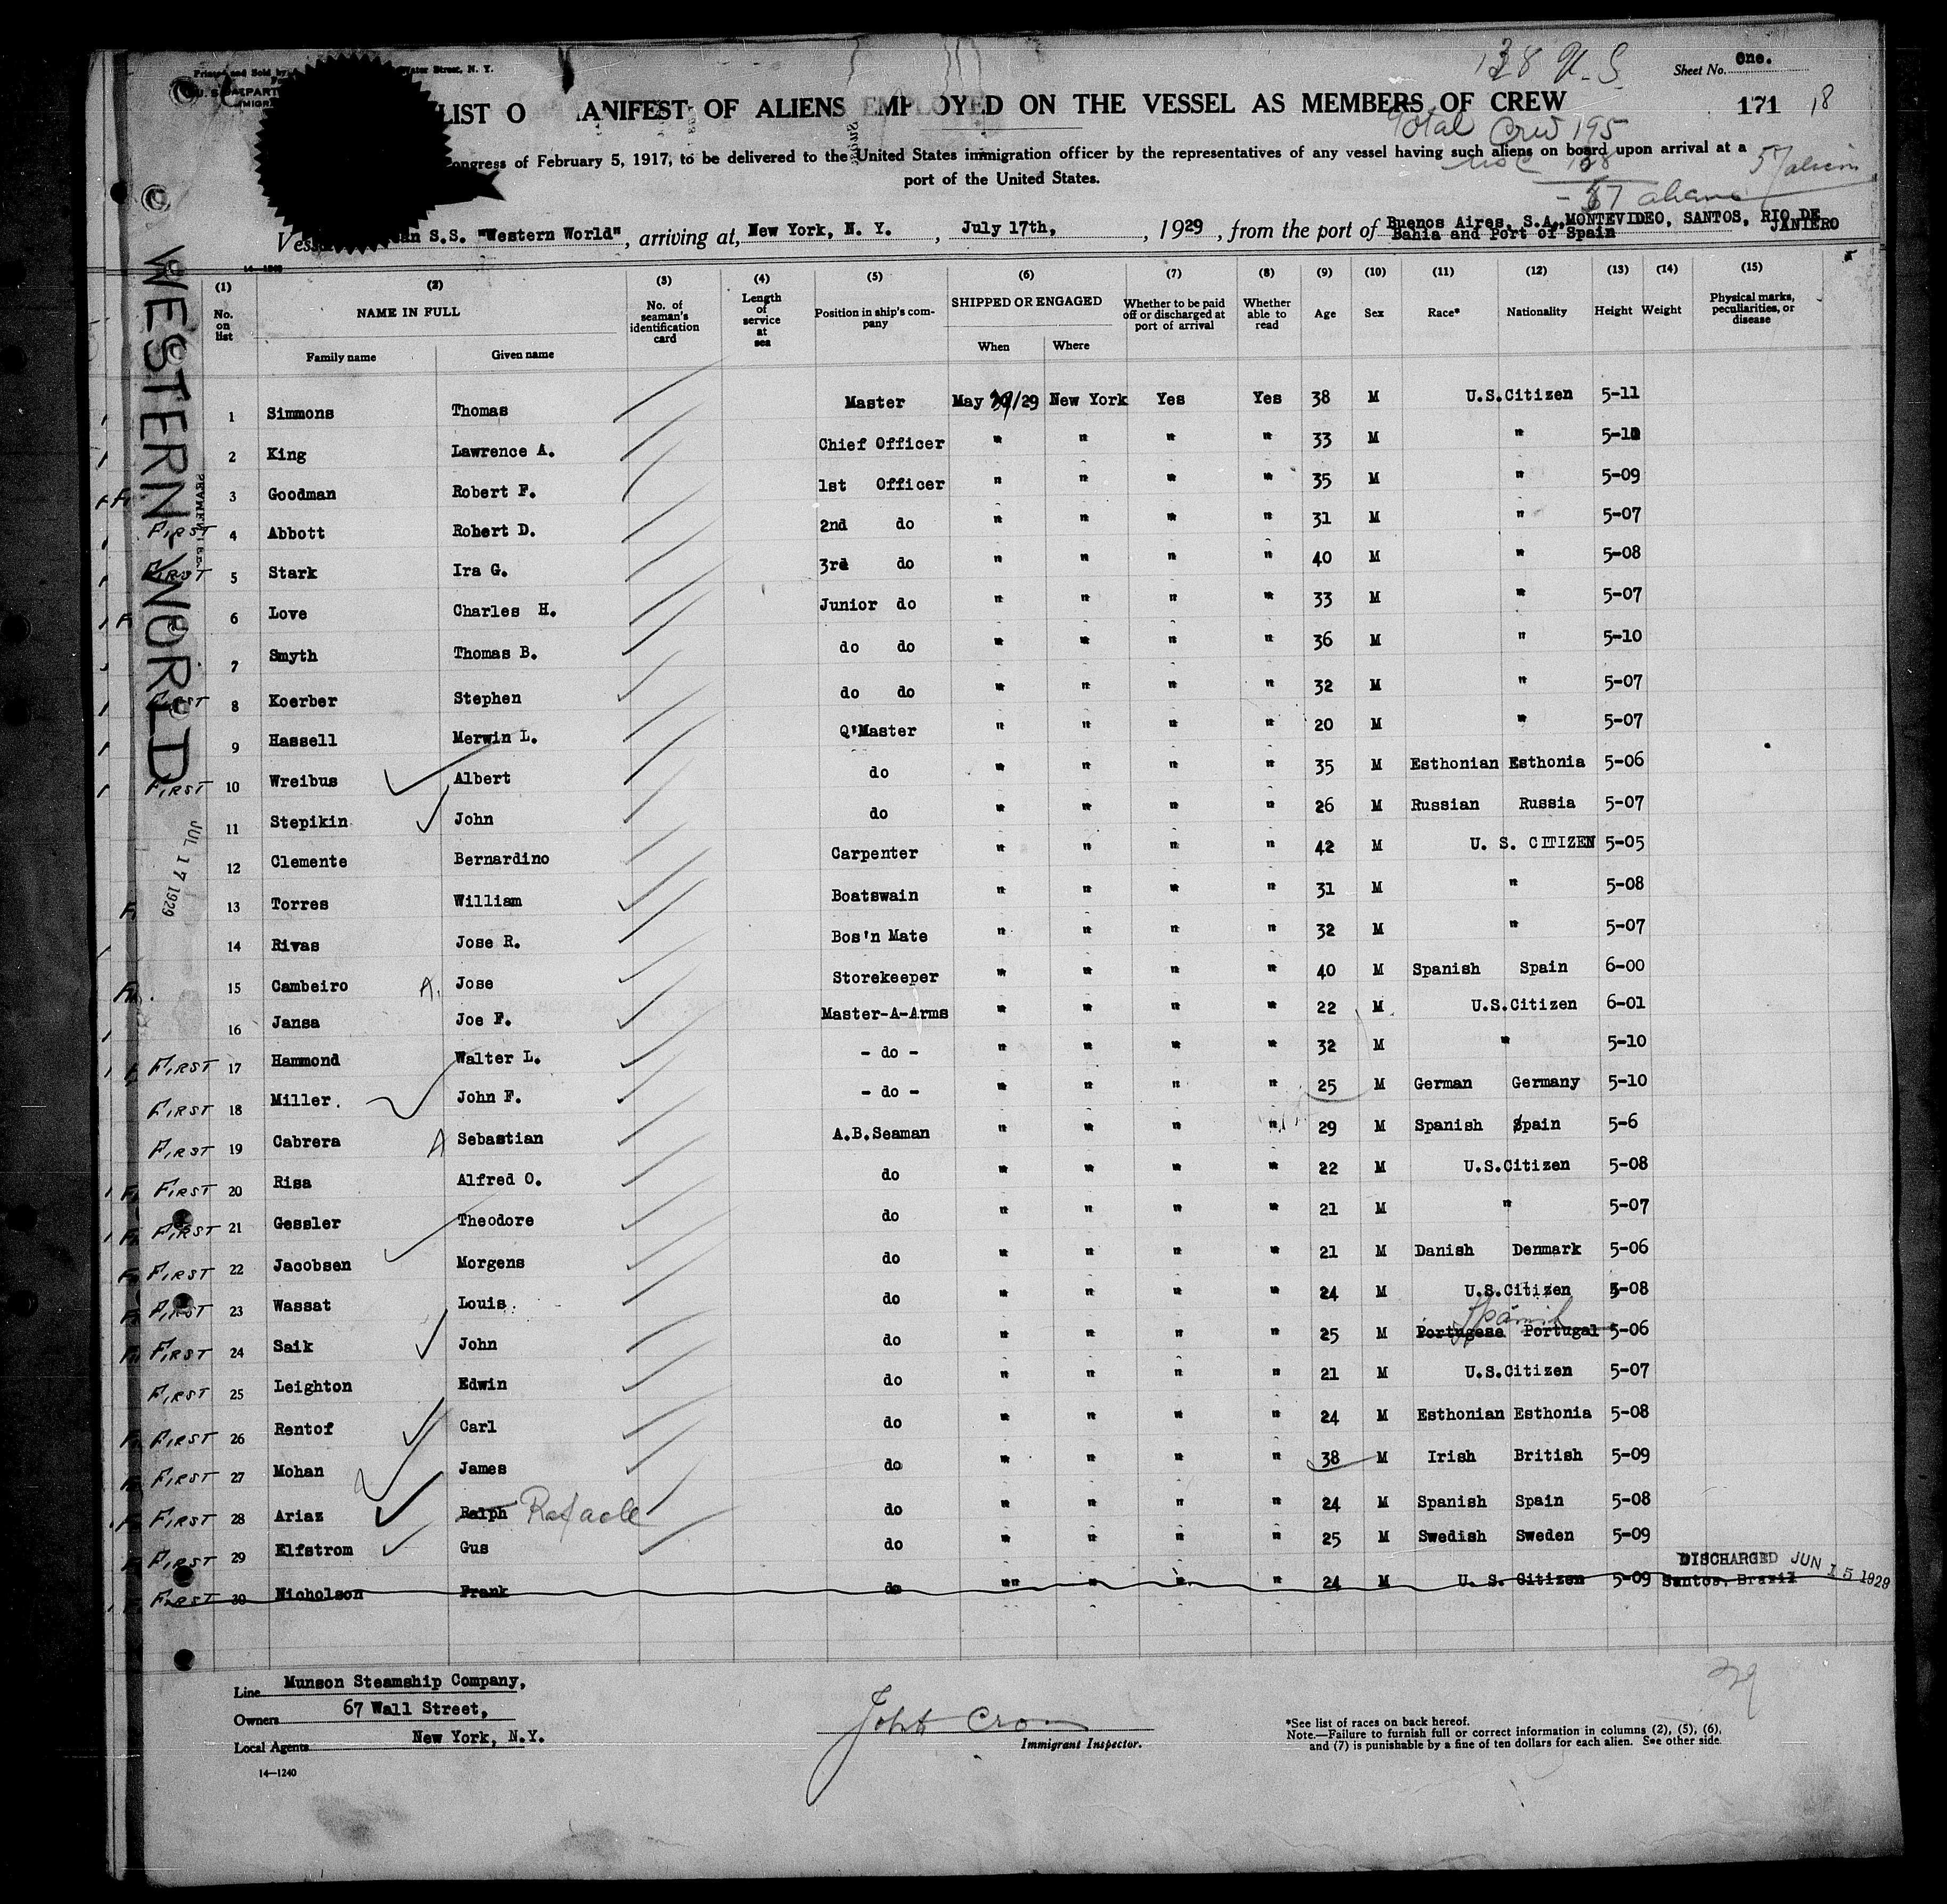 Printed and Sold by Water Street, N. Y.
138 U.S.
Sheet No. One.
LIST O ANIFEST OF ALIENS EMPLOYED ON THE VESSEL AS MEMBERS OF CREW
171 18
Total Crew 195
ongress of February 5, 1917, to be delivered to the United States immigration officer by the representatives of any vessel having such aliens on board upon arrival at a
port of the United States.
57 aliens
57 aliens
Vess an S.S. "Western World", arriving at, New York, N. Y. , July 17th, , 1929 , from the port of Buenos Aires, S.A., MONTEVIDEO, SANTOS, RIO DE JANIERO
Bahia and Port of Spain
WESTERN WORLD
JUL 17 1929
14-1240
(1) (2) (3) (4) (5) (6) (7) (8) (9) (10) (11) (12) (13) (14) (15)
No. on list NAME IN FULL Family name Given name No. of seaman's identification card Length of service at sea Position in ship's company SHIPPED OR ENGAGED When Where Whether to be paid off or discharged at port of arrival Whether able to read Age Sex Race* Nationality Height Weight Physical marks, peculiarities, or disease
1 Simmons Thomas Master May 29/29 New York Yes Yes 38 M U.S.Citizen 5-11
2 King Lawrence A. Chief Officer " " " " 33 M " 5-10
3 Goodman Robert F. 1st Officer " " " " 35 M " 5-09
FIRST 4 Abbott Robert D. 2nd do " " " " 31 M " 5-07
FIRST 5 Stark Ira G. 3rd do " " " " 40 M " 5-08
6 Love Charles H. Junior do " " " " 33 M " 5-07
7 Smyth Thomas B. do do " " " " 36 M " 5-10
FIRST 8 Koerber Stephen do do " " " " 32 M " 5-07
9 Hassell Merwin L. Q'Master " " " " 20 M " 5-07
FIRST 10 Wreibus Albert do " " " " 35 M Esthonian Esthonia 5-06
11 Stepikin John do " " " " 26 M Russian Russia 5-07
12 Clemente Bernardino Carpenter " " " " 42 M U. S. CITIZEN 5-05
13 Torres William Boatswain " " " " 31 M " 5-08
14 Rivas Jose R. Bos'n Mate " " " " 32 M " 5-07
15 Cambeiro A. Jose Storekeeper " " " " 40 M Spanish Spain 6-00
16 Jansa Joe F. Master-A-Arms " " " " 22 M U.S.Citizen 6-01
FIRST 17 Hammond Walter L. - do - " " " " 32 M " 5-10
FIRST 18 Miller. John F. - do - " " " " 25 M German Germany 5-10
FIRST 19 Cabrera A Sebastian A.B.Seaman " " " " 29 M Spanish Spain 5-6
FIRST 20 Risa Alfred O. do " " " " 22 M U.S.Citizen 5-08
FIRST 21 Gessler Theodore do " " " " 21 M " 5-07
FIRST 22 Jacobsen Morgens do " " " " 21 M Danish Denmark 5-06
FIRST 23 Wassat Louis do " " " " 24 M U.S.Citizen 5-08
FIRST 24 Saik John do " " " " 25 M Portugese Portugal Spanish 5-06
FIRST 25 Leighton Edwin do " " " " 21 M U.S.Citizen 5-07
FIRST 26 Rentof Carl do " " " " 24 M Esthonian Esthonia 5-08
FIRST 27 Mohan James do " " " " 38 M Irish British 5-09
FIRST 28 Ariaz Ralph Rafaele do " " " " 24 M Spanish Spain 5-08
FIRST 29 Elfstrom Gus do " " " " 25 M Swedish Sweden 5-09
FIRST 30 Nicholson Frank do " " " " 24 M U. S. Citizen 5-09 DISCHARGED JUN 15 1929 Santos, Brazil
29
Line Munson Steamship Company,
Owners 67 Wall Street,
Local Agents New York, N.Y.
14-1240
Immigrant Inspector.
*See list of races on back hereof.
Note.—Failure to furnish full or correct information in columns (2), (5), (6),
and (7) is punishable by a fine of ten dollars for each alien. See other side.